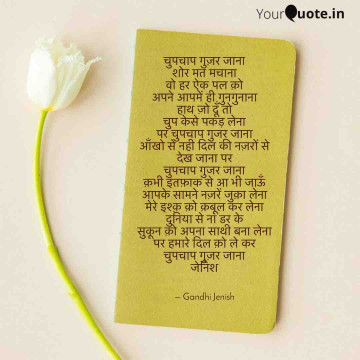 YourQuote.in
चुपचाप गुज़र जाना
शोर मत मचाना
वो हर ऐक पल क़ो
अपने आपमें ही गुनगुनाना
हाथ ज़ो दूँ तो
चुप केसे पकड़ लेना
पर चुपचाप गुजर जाना
आँखो से नही दिल की नज़रों से
देख जाना पर
चुपचाप गुजर जाना
क़भी इतफ़ाक़ से आ भी जाऊँ
आपके सामने नज़रें जुक़ा लेना
मेरे इश्क़ को क़बूल कर लेना
दुनिया से ना डर के
सुकून क़ो अपना साथी बना लेना
पर हमारे दिल क़ो ले कर
चुपचाप गुज़र जाना
जेनिश
– Gandhi Jenish